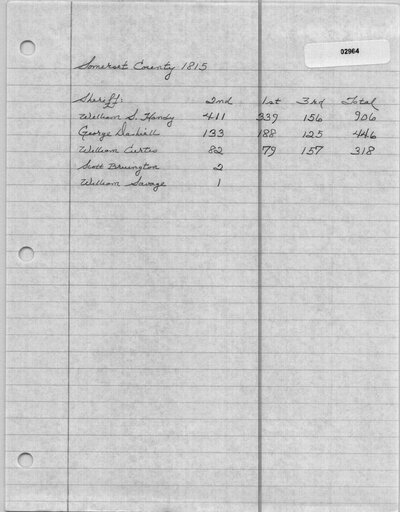 02964
Somerset County 1815
Sheriff: 2nd 1st 3rd Total
William S. Handy 411 339 156 906
George Dashiell 133 188 125 446
William Curtis 82 79 157 318
Scott Bruington 2
William Savage 1